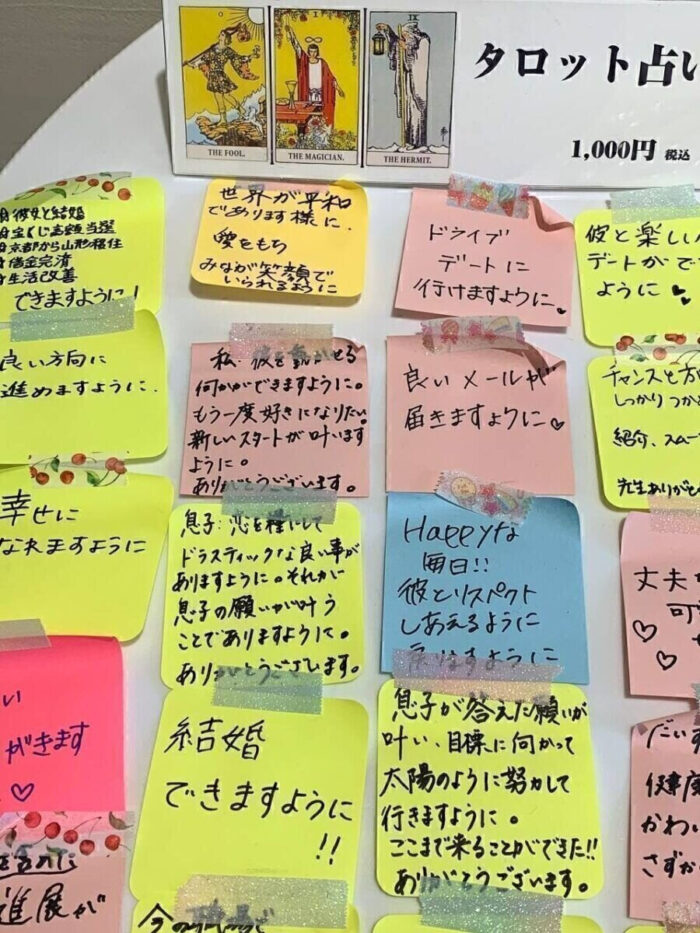 I
IX
THE FOOL.
THE MAGICIAN.
THE HERMIT.
タロット占い
1,000円 税込
彼女と結婚
宝くじ高額当選
京都から山形移住
借金完済
生活改善
できますように!
世界が平和
であります様に.
愛をもち
みなが笑顔で
いられるように
ドライブ
デートに
行けますように♡
彼と楽しい
デートがで
ように♥
良い方向に
進めますように.
私:彼を動かせる
何かができますように。
もう一度好きになりたい。
新しいスタートが叶います
ように。
ありがとうございます。
良いメールが
届きますように♡
チャンスと
しっかりつか
紹介、スムー
先生ありがと
幸せに
なれますように
息子:恋を
ドラスティックな良い事が
ありますように。それが
息子の願いが叶う
ことでありますように。
ありがとうございます。
Happyな
毎日!!
彼とリスペクト
しあえるように
丈夫
可
♡
♡
い
がきます
♡
結婚
できますように
!!
息子が答えた願いが
叶い、目標に向かって
太陽のように努力して
行きますように。
ここまで来ることができた!!
ありがとうございます。
だいす
健康
かわい
さずか
進展が
今の